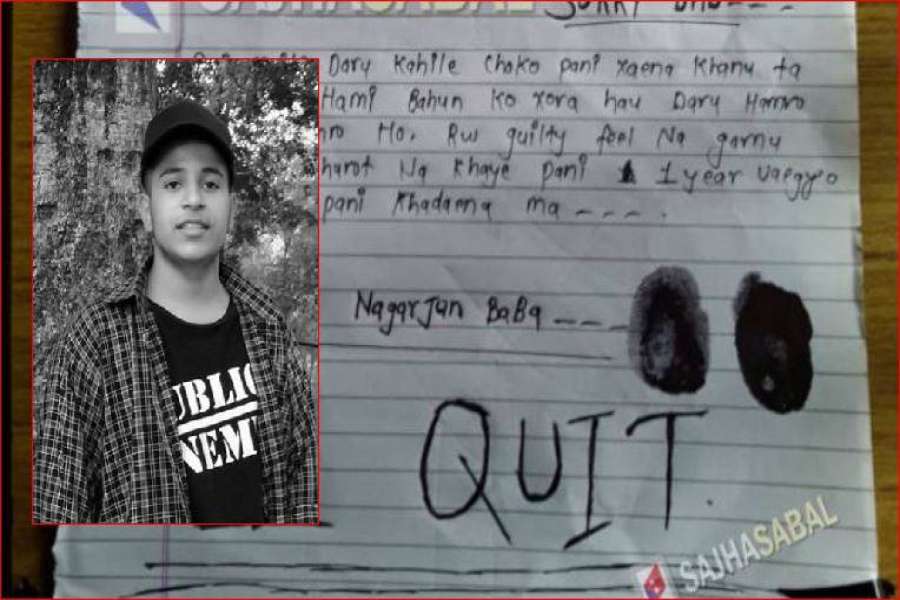 SAJHASABAL
SORRY DAD----
Daru Kahile Chako pani xaena Khanu ta
Hami Bahun ko xora hau Daru Hamro
Ho. Rw guilty feel Na garnu
Na Khaye pani 1 year vaegyo
pani Khadaena ma ---.
Nagarjun BaBa ---
PUBLIC
ENEMY
QUIT.
SAJHASABAL